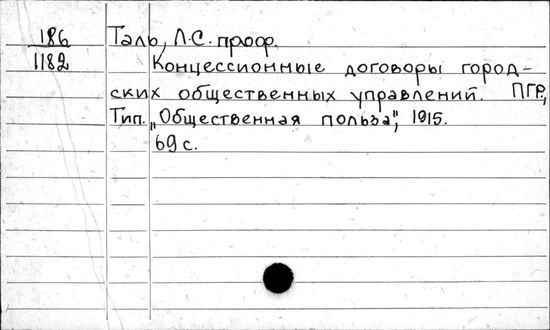 186 Таль, Л.С. проф.
1182 Концессионные договоры город-
ских общественных управлений. ПГР.,
Тип. „Общественная польза", 1915.
69 с.